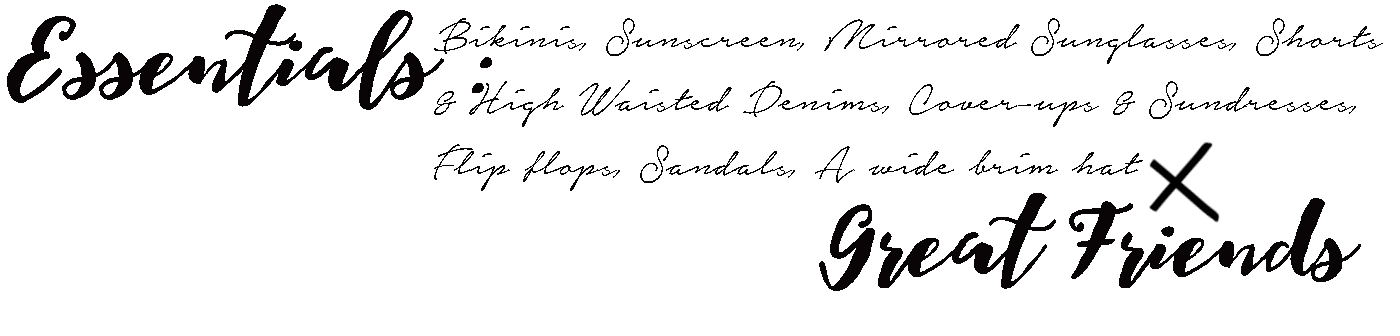 Essentials : Bikinis, Sunscreen, Mirrored Sunglasses, Shorts
& High Waisted Denims, Cover-ups & Sundresses,
Flip flops, Sandals, A wide brim hat X
Great Friends